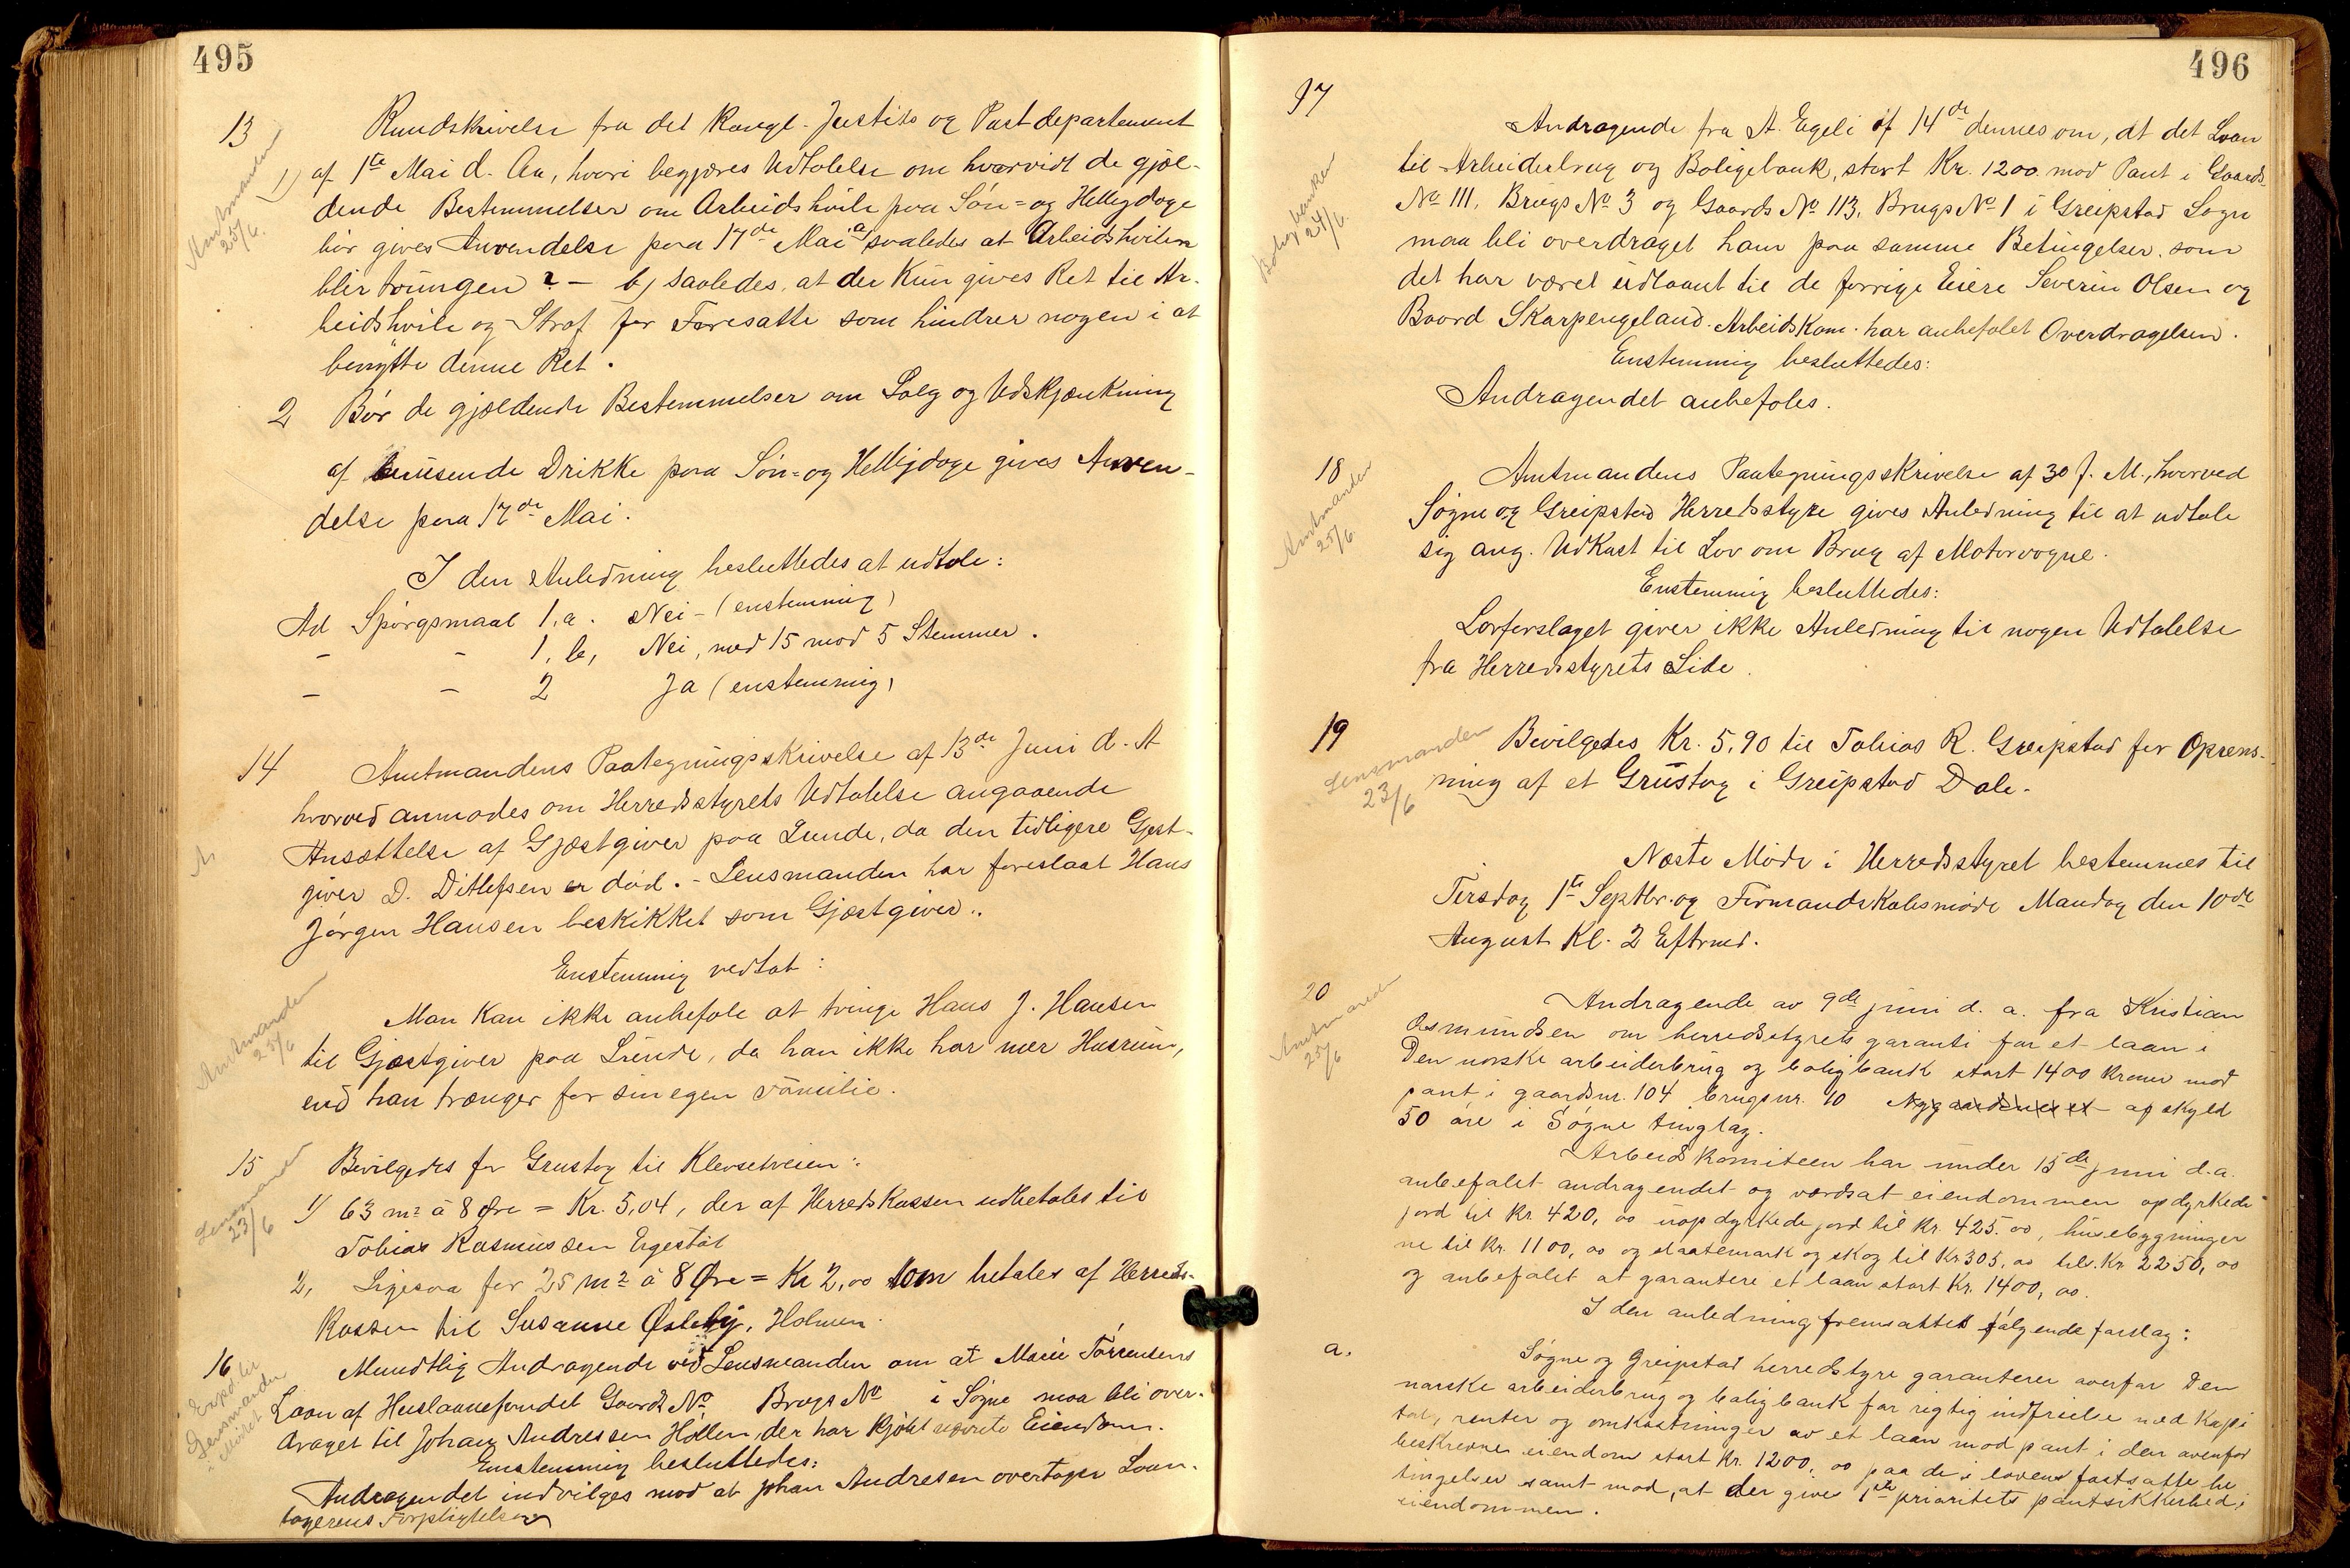 495
13
Rundskrivelse fra det Kongl. Justits og Postdepartement
Amtmanden
25/6.
1) af 1ste Mai d. Aa, hvori begjæres Udtalelse om hvorvidt de gjæl-
dende Bestemmelser om Arbeidshvile paa Søn- og Helligdage
bør gives Anvendelse paa 17de Mai a, saaledes at Arbeidshvilen
blir tvungen? - b, saaledes, at der kun gives Ret til Ar-
beidshvile og Straf for Foresatte som hindrer nogen i at
benytte denne Ret.
2 Bør de gjældende Bestemmelser om Salg og Udskjænkning
af berusende Drikke paa Søn- og Helligdage gives Anven-
delse paa 17de Mai.
I den Anledning besluttedes at udtale:
Ad Spørgsmaal 1, a. Nei - (enstemmig)
- - 1, b, Nei, med 15 mod 5 Stemmer.
- - 2 Ja (enstemmig)
14
Amtmandens Paategningsskrivelse af 13de Juni d. A
hvorved anmodes om Herredsstyrets Udtalelse angaaende
Ansættelse af Gjæstgiver paa Lunde, da den tidligere Gjæst-
giver D. Ditlefsen er død. - Lensmanden har foreslaat Hans
Jørgen Hansen beskikket som Gjæstgiver.
Enstemmig vedtat:
Amtmanden
25/6
Man kan ikke anbefale at tvinge Hans J. Hansen
til Gjæstgiver paa Lunde, da han ikke har mer Husrum,
end han trænger for sin egen Familie.
15
Lensmanden
23/6
Bevilgedes for Grustag til Klevsetveien:
1) 63 m2 à 8 Øre = Kr. 5,04, der af Herredskassen udbetales til
Tobias Rasmussen Egestøl
2, Ligesaa for 25 m2 à 8 Øre = Kr 2,00 som betales af Herreds-
kassen til Susanne Østeby, Holmen.
16
Lensmanden
Mundtlig Andragende ved Lensmanden om at Marie Tørresens
Laan af Huslaanefondet Gaards No Brugs No i Søgne maa bli over-
draget til Johan Andressen Høllen, der har kjøbt nævnte Eiendom.
Enstemmig besluttedes:
Andragendet indvilges mod at Johan Andresen overtager Laan-
tagerens Forpligtelser
496
17
Andragende fra A. Egeli af 14de dennes om, at det Laan
Boligbanken
24/6.
til Arbeiderbrug og Boligbank, stort Kr. 1200 mod Pant i Gaards-
No 111, Brugs No 3 og Gaards No 113, Brugs No 1 i Greipstad Sogn
maa bli overdraget ham paa samme Betingelser, som
det har været udlaant til de forrige Eiere Severin Olsen og
Baard Skarpengeland. Arbeidskom. har anbefalet Overdragelsen.
Enstemmig besluttedes:
Andragendet anbefales.
18
Amtmanden
25/6
Amtmandens Paategningsskrivelse af 30 f. M., hvorved
Søgne og Greipstad Herredsstyre gives Anledning til at udtale
sig ang. Udkast til Lov om Brug af Motorvogne.
Enstemmig besluttedes:
Lovforslaget giver ikke Anledning til nogen Udtalelse
fra Herredsstyrets Side.
19
Lensmanden
23/6
Bevilgedes Kr. 5,90 til Tobias R. Greipstad for Oprens-
ning af et Grustag i Greipstad Dale.
Næste Møde i Herredsstyret bestemmes til
Tirsdag 1ste Septbr. og Formandskabsmøde Mandag den 10de
August Kl. 2 Eftmd.
20
Amtmanden
25/6
Andragende av 9de juni d. a. fra Kristian
Asmundsen om herredsstyrets garanti for et laan i
Den norske arbeiderbrug og boligbank stort 1400 kroner mod
pant i gaardsnr. 104 brugsnr. 10 af skyld
50 øre i Søgne tinglag.
Arbeidskomiteen har under 15de juni d.a.
anbefalet andragendet og værdsat eiendommen opdyrkede
jord til kr. 420,00 uopdyrkede jord til kr. 425.00, husebygninger
ne til kr. 1100,00 og slaattemark og skog til kr 305,00 tils. kr 2250,00
og anbefalet at garantere et laan stort kr. 1400,00.
I den anledning fremsattes følgende forslag:
a.
Søgne og Greipstad herredsstyre garanterer overfor Den
norske arbeiderbrug og boligbank for rigtig indfrielse med kapi
tal, renter og omkostninger av et laan mod pant i den ovenfor
beskrevne eiendom stort kr. 1200,00 paa de i lovens fastsatte be
tingelser samt mod, at der gives 1ste prioritets pantsikkerhed i
eiendommen.